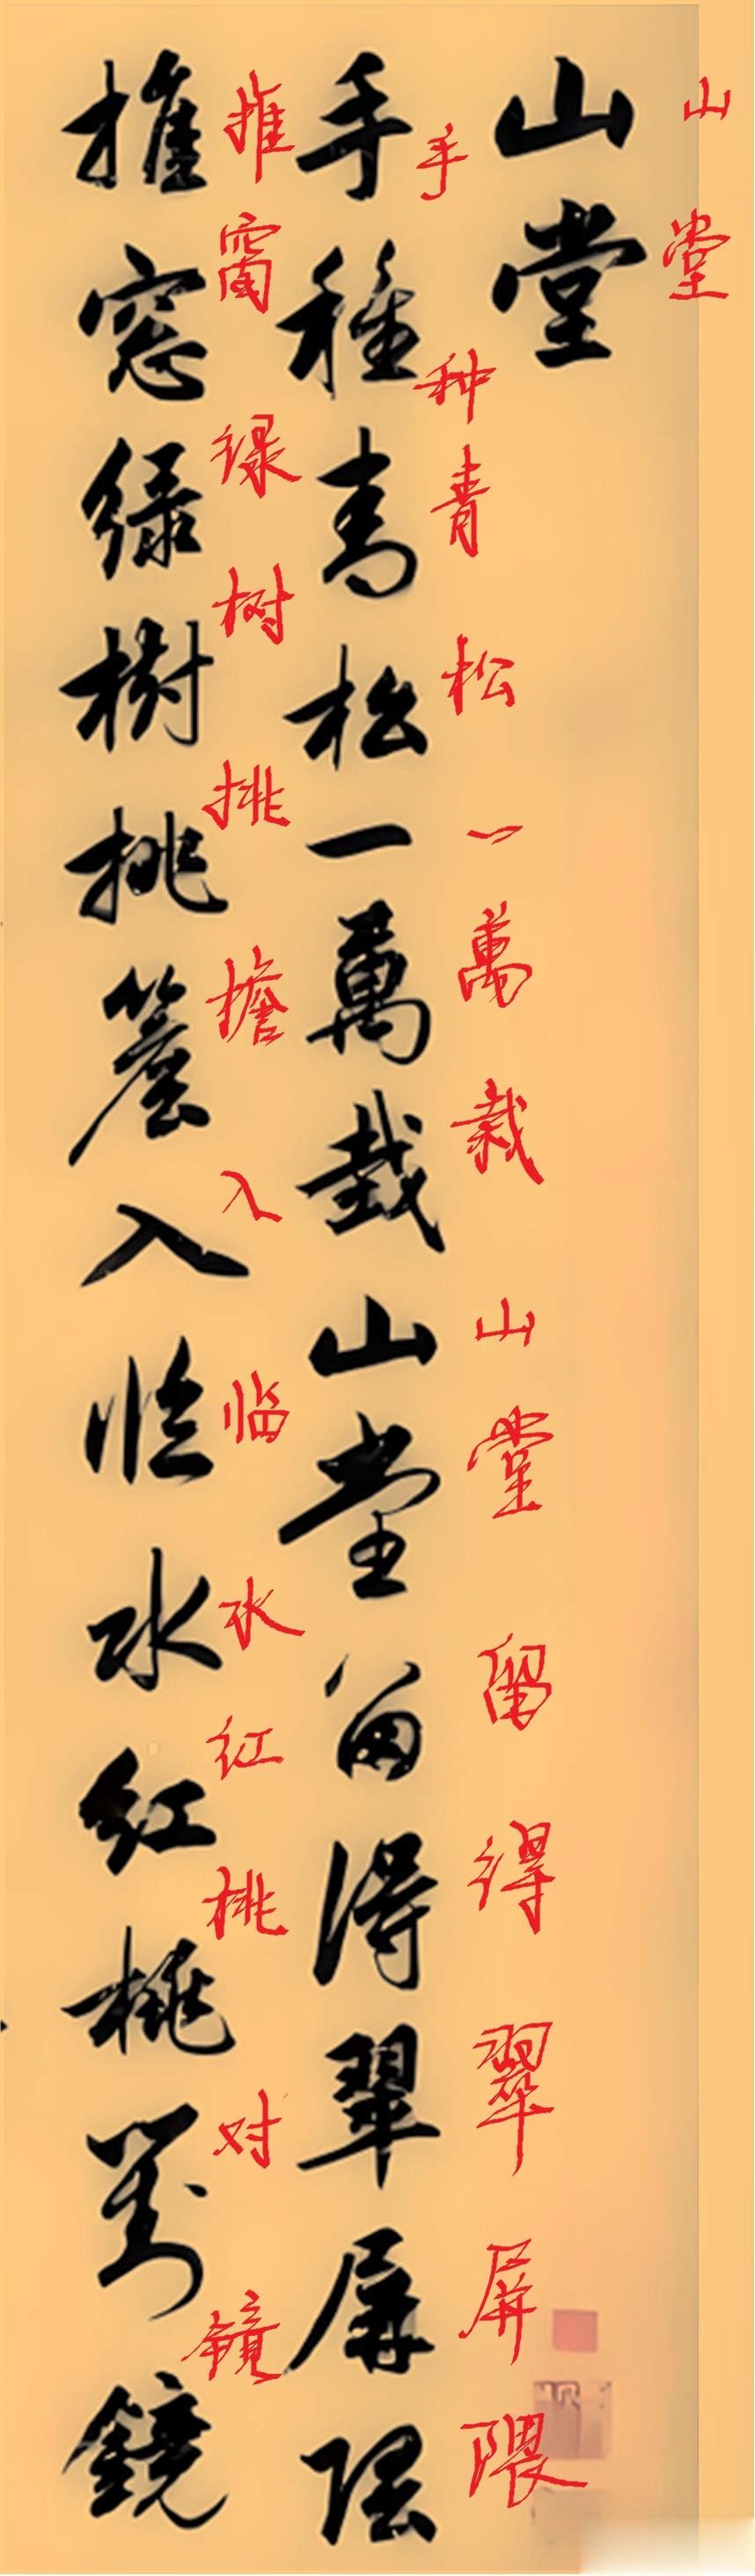 山堂
山堂
手种青松一萬栽山堂留得翠屏隈
手種青松一萬栽山堂留得翠屏隈
推窗绿树挑擔入临水红桃对镜
推窓緑樹挑簷入臨水紅桃對鏡